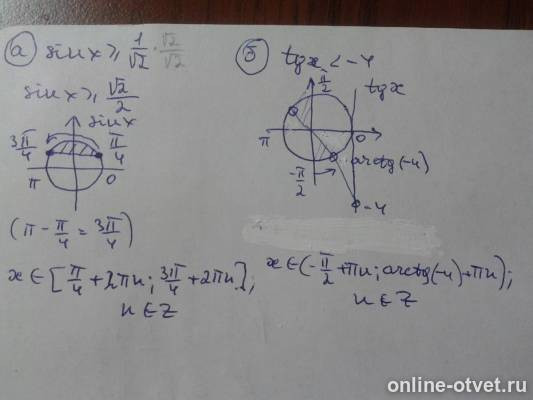 а) sin x ≥ 1/√2 · √2/√2
sin x ≥ √2/2
sin x
3π/4 π/4
π 0
(π - π/4 = 3π/4)
x ∈ [π/4 + 2πn; 3π/4 + 2πn];
n ∈ Z
б) tg x < -4
π/2 tg x
π 0
-π/2 arctg(-4)
-4
x ∈ (-π/2 + πn; arctg(-4) + πn);
n ∈ Z
online-otvet.ru